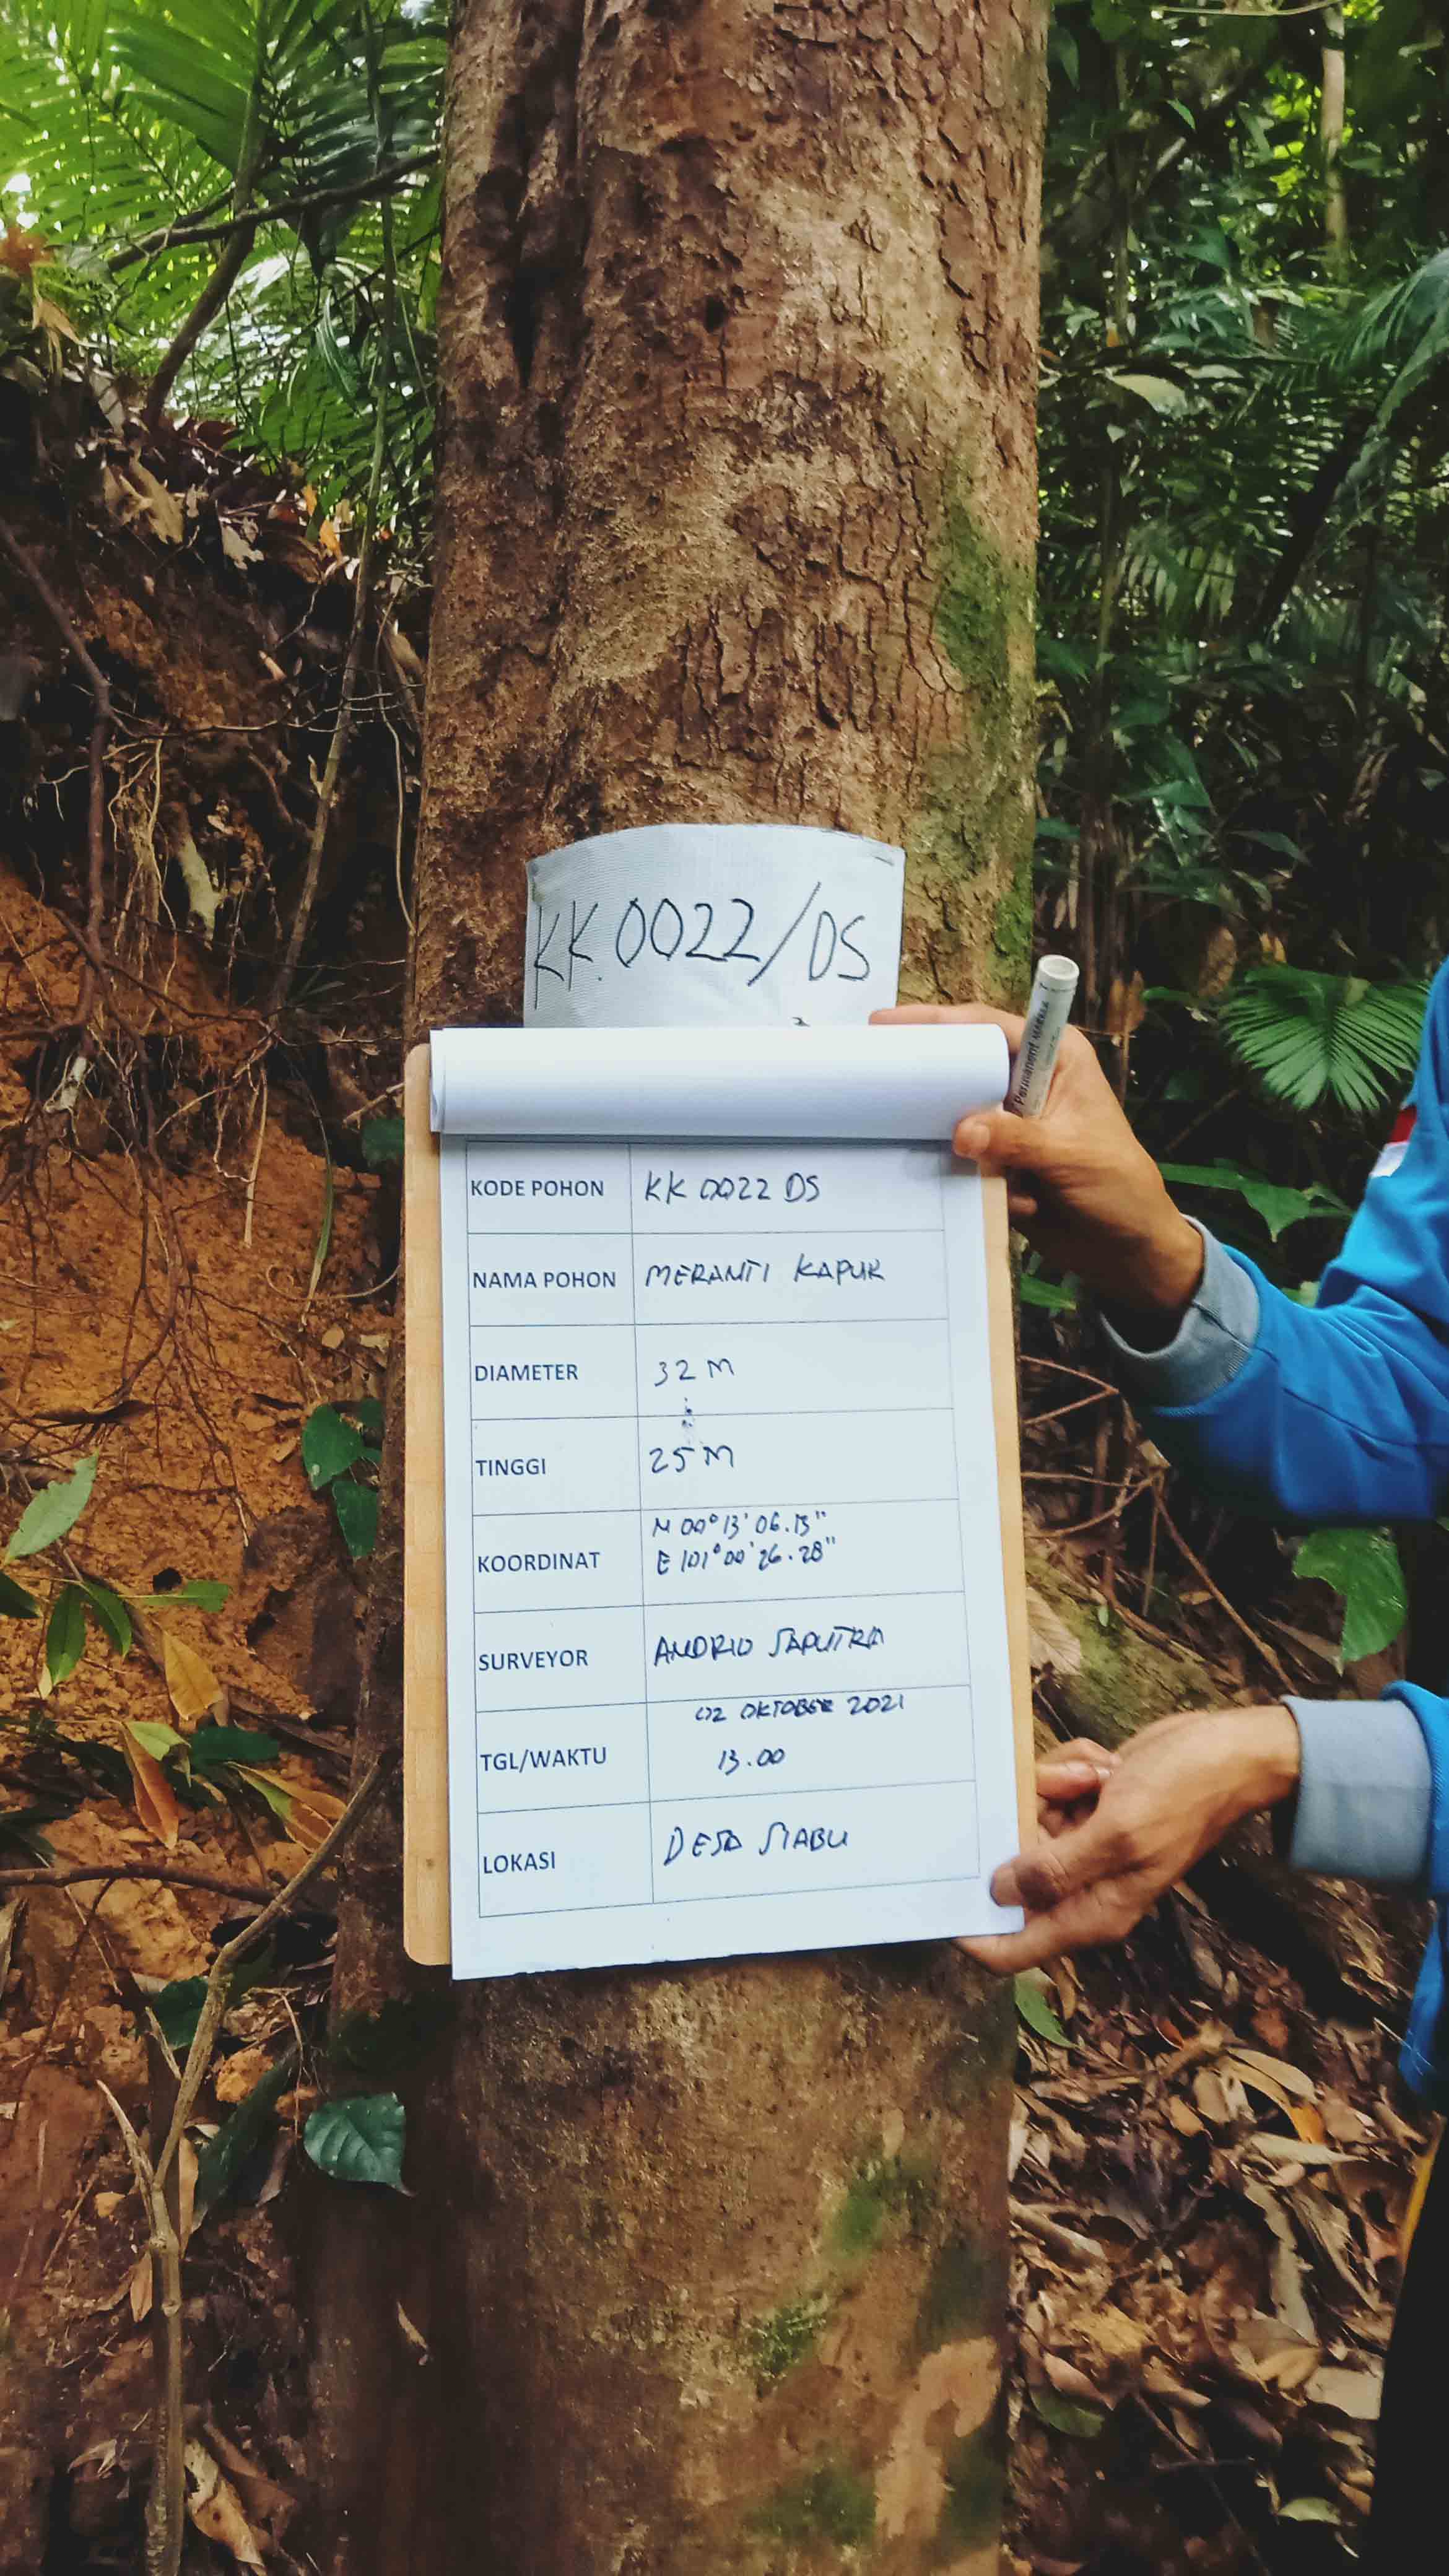 KK.0022/DS
Permanent MARKER
KODE POHON KK 0022 DS
NAMA POHON MERANTI KAPUR
DIAMETER 32 M
TINGGI 25 M
KOORDINAT N 00° 13' 06.13"
E 101° 00' 26.28"
SURVEYOR ANDRIO SAPUTRA
TGL/WAKTU 02 OKTOBER 2021
13.00
LOKASI DESA SIABU